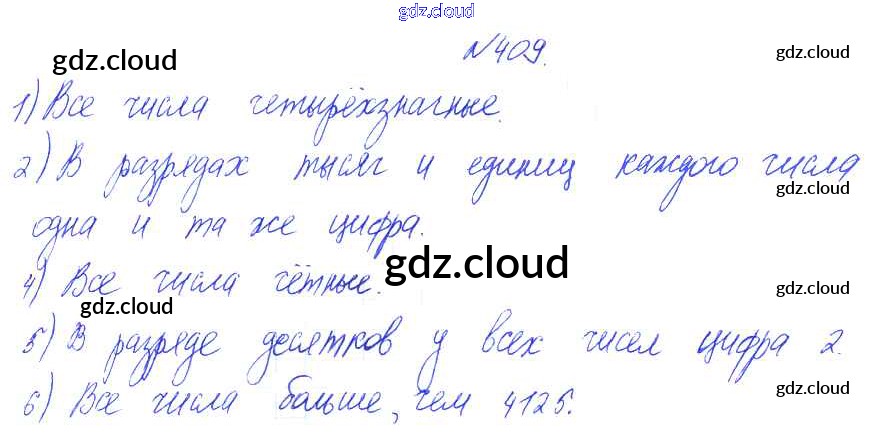 gdz.cloud
№409.
gdz.cloud gdz.cloud
1) Все числа четырёхзначные.
2) В разрядах тысяч и единиц каждого числа
gdz.cloud
одна и та же цифра.
gdz.cloud
4) Все числа чётные.
gdz.cloud gdz.cloud
5) В разряде десятков у всех чисел цифра 2.
6) Все числа больше, чем 4125.
gdz.cloud